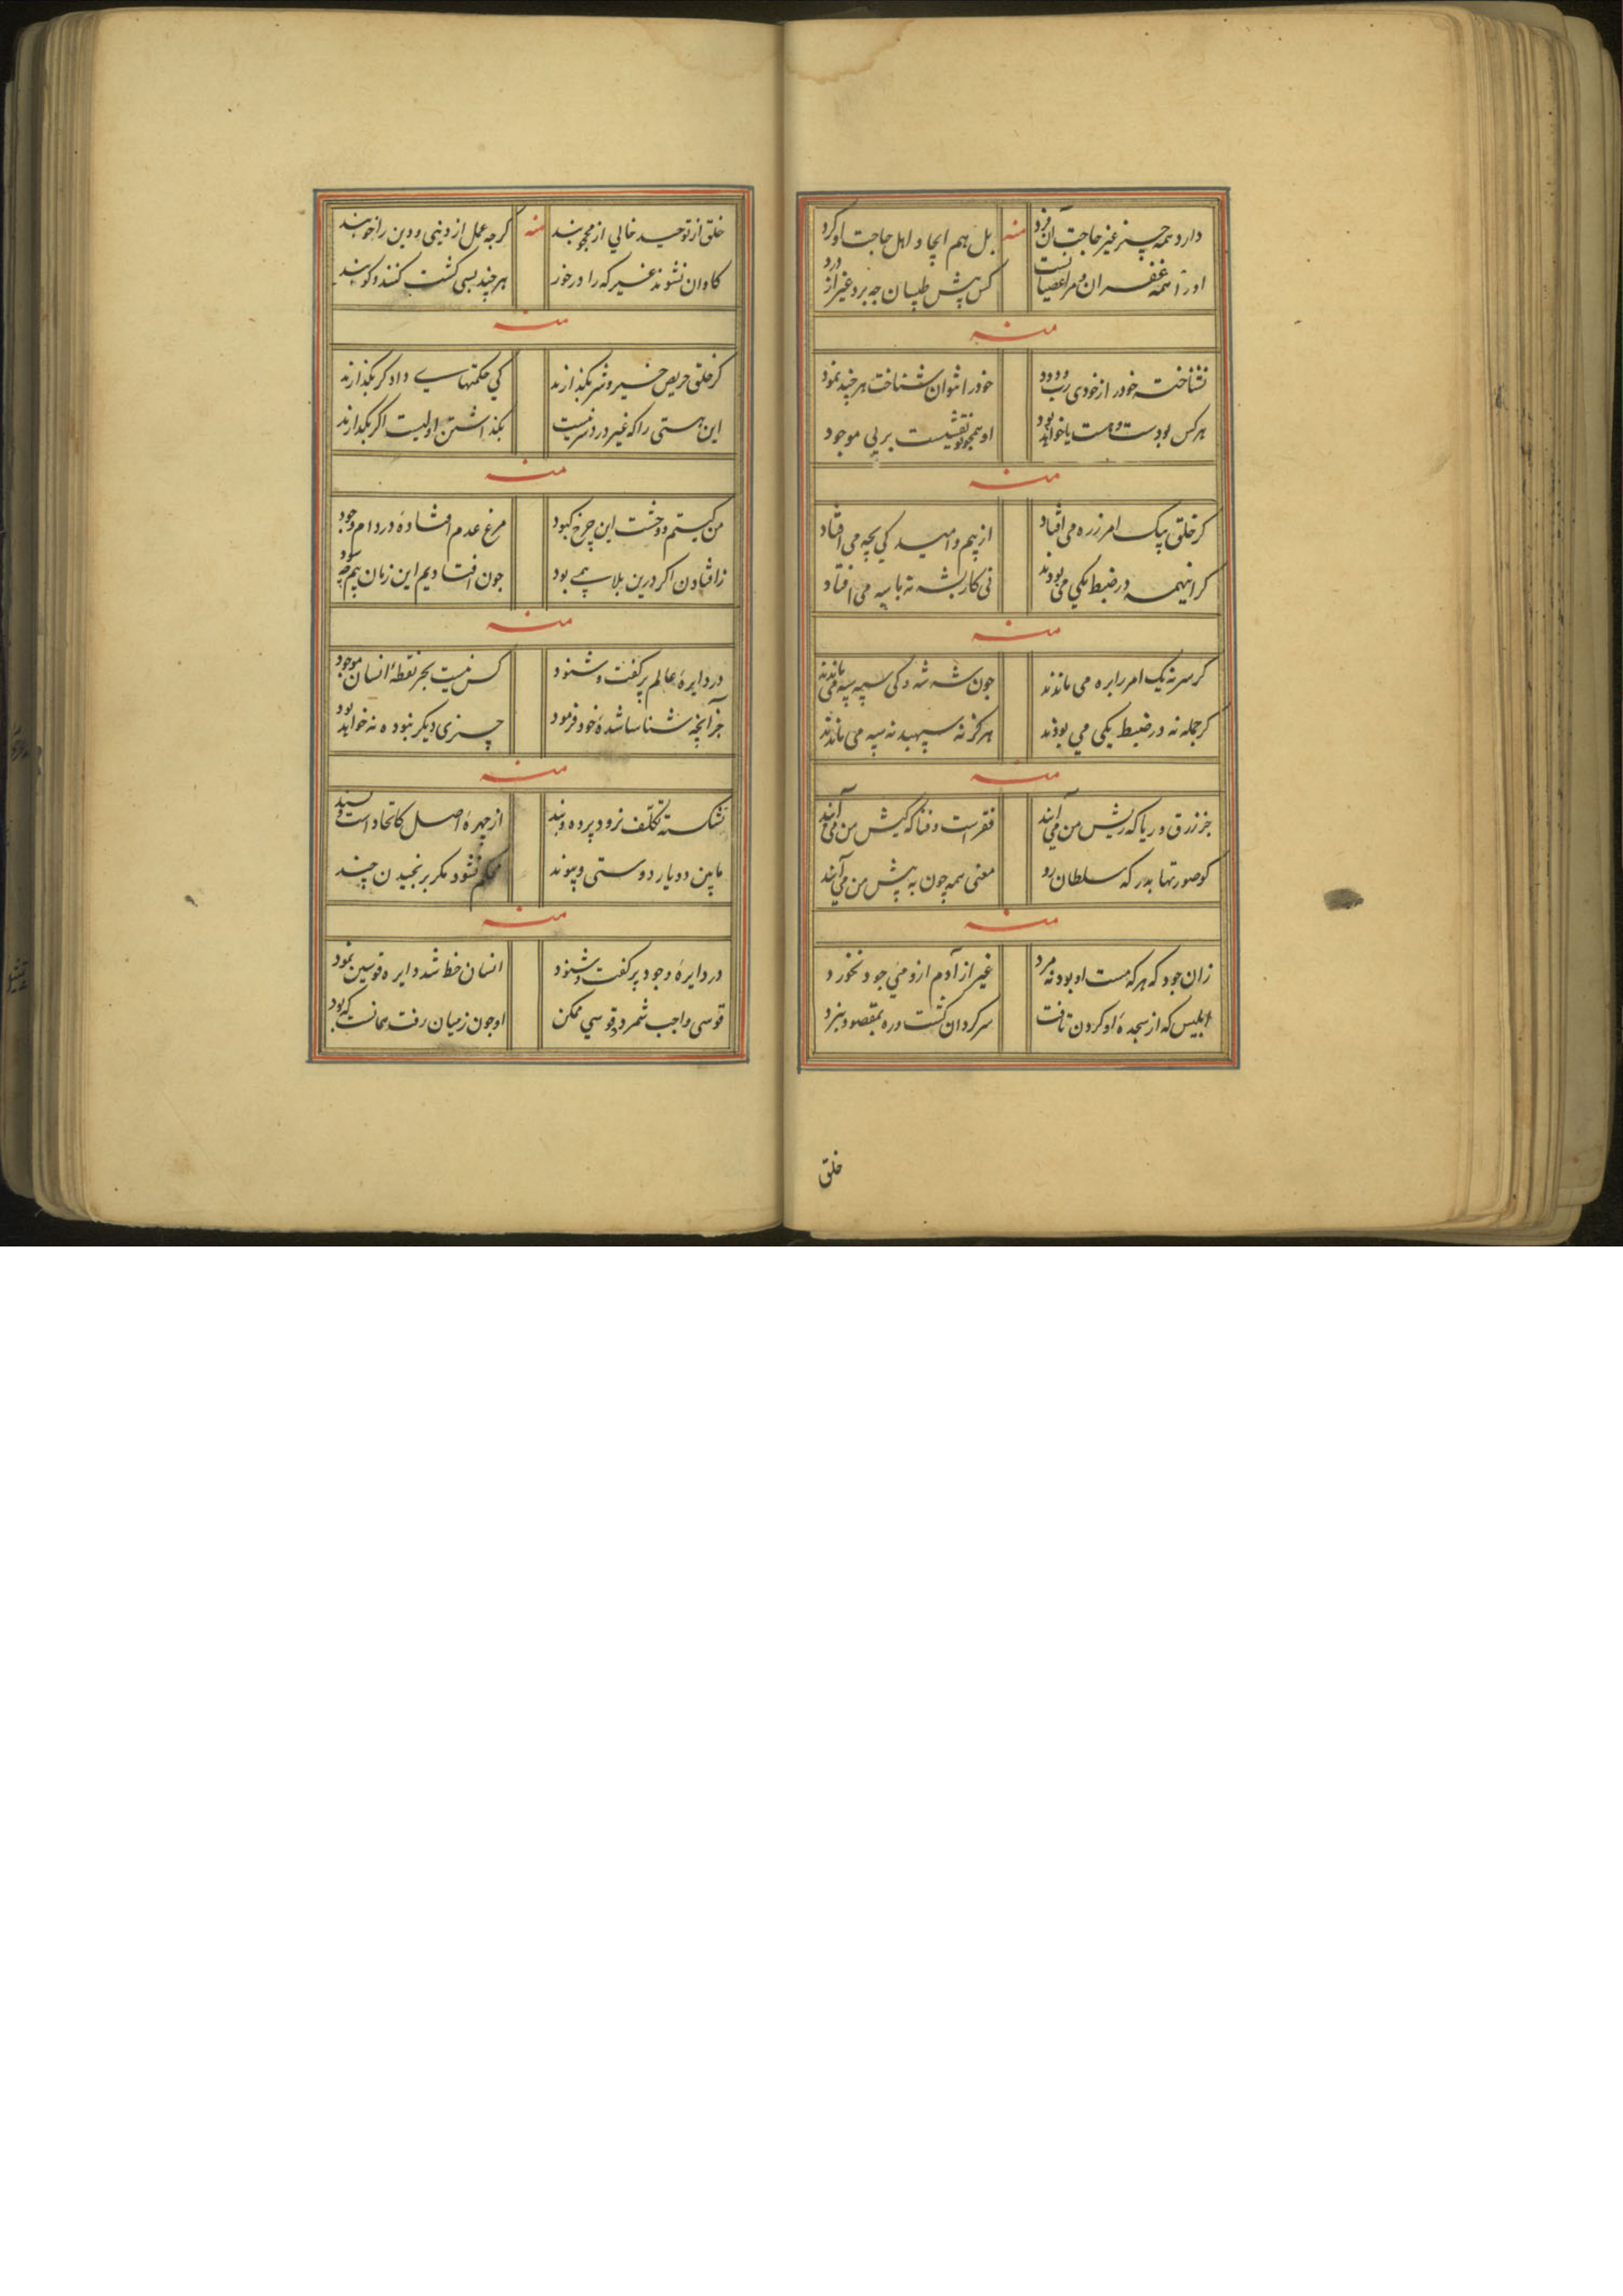 دارد همه چیز غیر حاجت آن فرد منه بل هم ایجاد اهل حاجت او کرد
او را همه غفران و مرا عصیانست کس پیش طبیبان چه برد غیر از درد
منه
نشناخته خود را از خودی رب ودود خود را نتوان شناخت هر چند نمود
هر کس بودست و هست یا خواهد بود او همچو نقشیست بر پی موجود
منه
کر خلق بیک امر ز ره می افتاد از بیم و امید کی بچه می افتاد
کر اینهمه در ضبط یکی می بودند نی کار بشه نه با سپه می افتاد
منه
کر سر نه یک امر را بره می ماندند چون شه شد و کی سپه سپه می ماندند
کر جمله نه در ضبط یکی می بودند هرکز نه سپهبد نه سپه می ماندند
منه
جز زرق و ریا که ریش من می آیند فقر است و فنا که کیش من می آیند
کو صورتها بدرکه سلطان رو معنی همه چون به پیش من می آیند
منه
زان جود که هر که هست او بود نه مرد غیر از آدم ازو می جود نخورد
ابلیس که از سجدهٔ او کردن تافت سرکردان کشت و ره بمقصود نبرد
خلق
خلق از توحید خالی از محجوبند منه کرچه عمل از دینی و دین را خوبند
کاوان نشوند غیر که را در خور هر چند بسی کشت کنند و کوبند
منه
کر خلق حریص خیر و شر بکذارند کی حکمتهای دادکر بکذارند
این هستی را که غیر درد سر نیست بکذاشتن اولیست اکر بکذارند
منه
من کیستم و وحشت این چرخ کبود مرغ عدم افتاده در دام وجود
ز افتادن اکر درین بلا بیمی بود چون افتادیم این زمان بیم چه بود
منه
در دایرهٔ عالم پر کفت و شنود کس نیست بجز نقطهٔ انسان موجود
جز آنچه شناسا شدهٔ خود فرمود چیزی دیکر نبوده نه خواهد بود
منه
نشکسته تکلف نرود پرده و بند از چهرهٔ اصل کاتحاد است و پسند
مابین دو یار دوستی و پیوند محکم نشود مکر برنجیدن چند
منه
در دایرهٔ وجود پر کفت و شنود انسان خط شد دایره قوسین نمود
قوسی واجب شمرد و قوسی ممکن او چون ز میان رفت همانست که بود